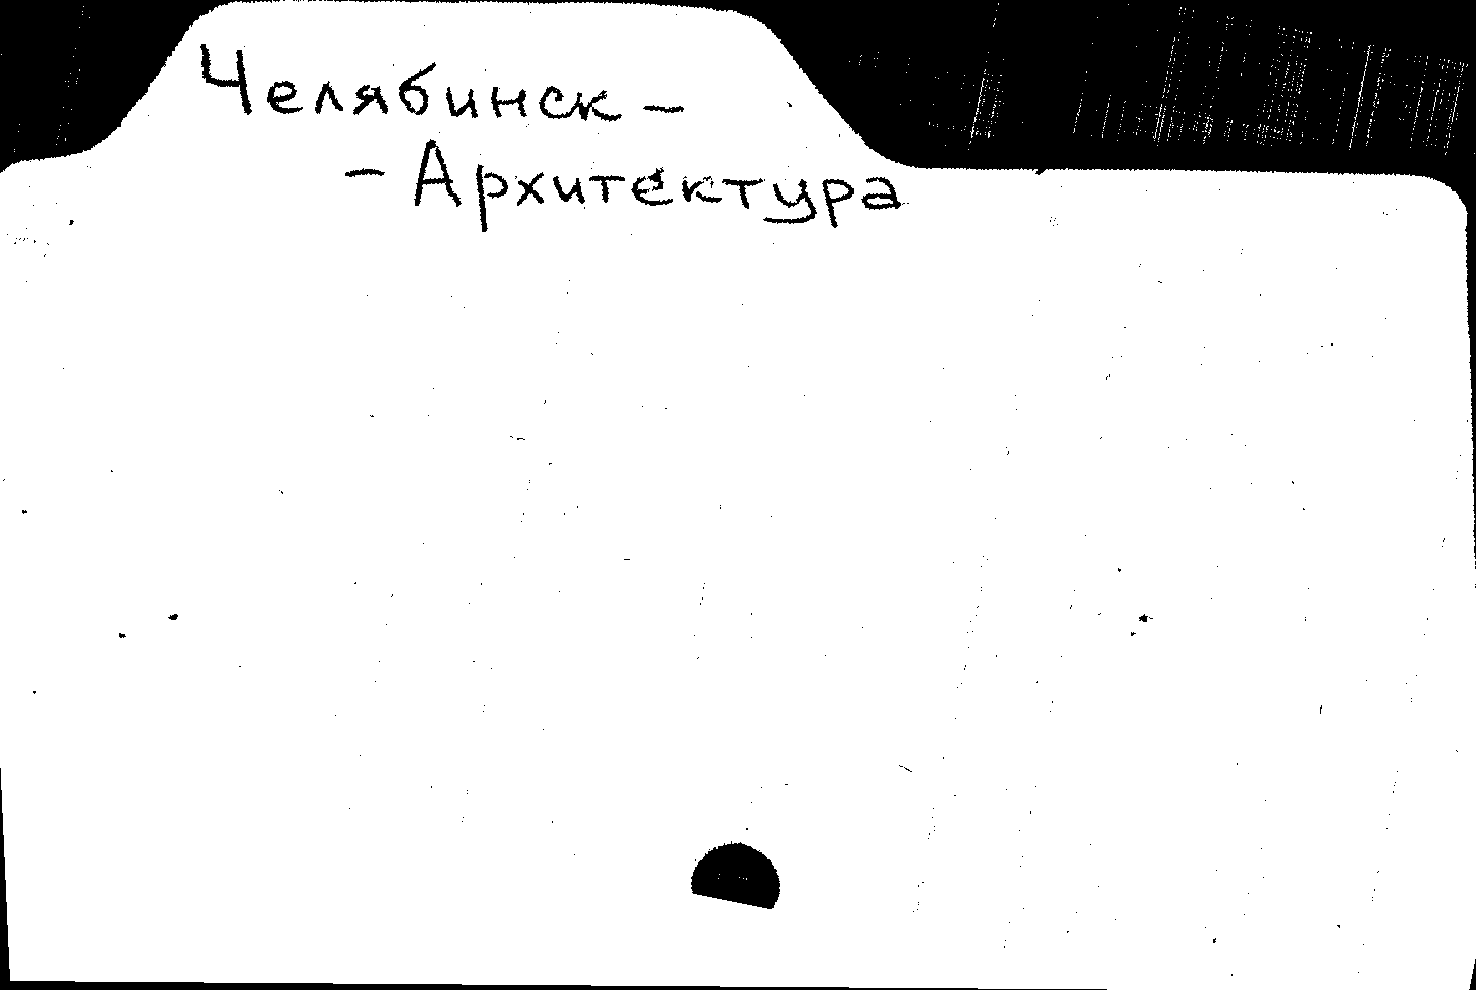 Челябинск -
- Архитектура